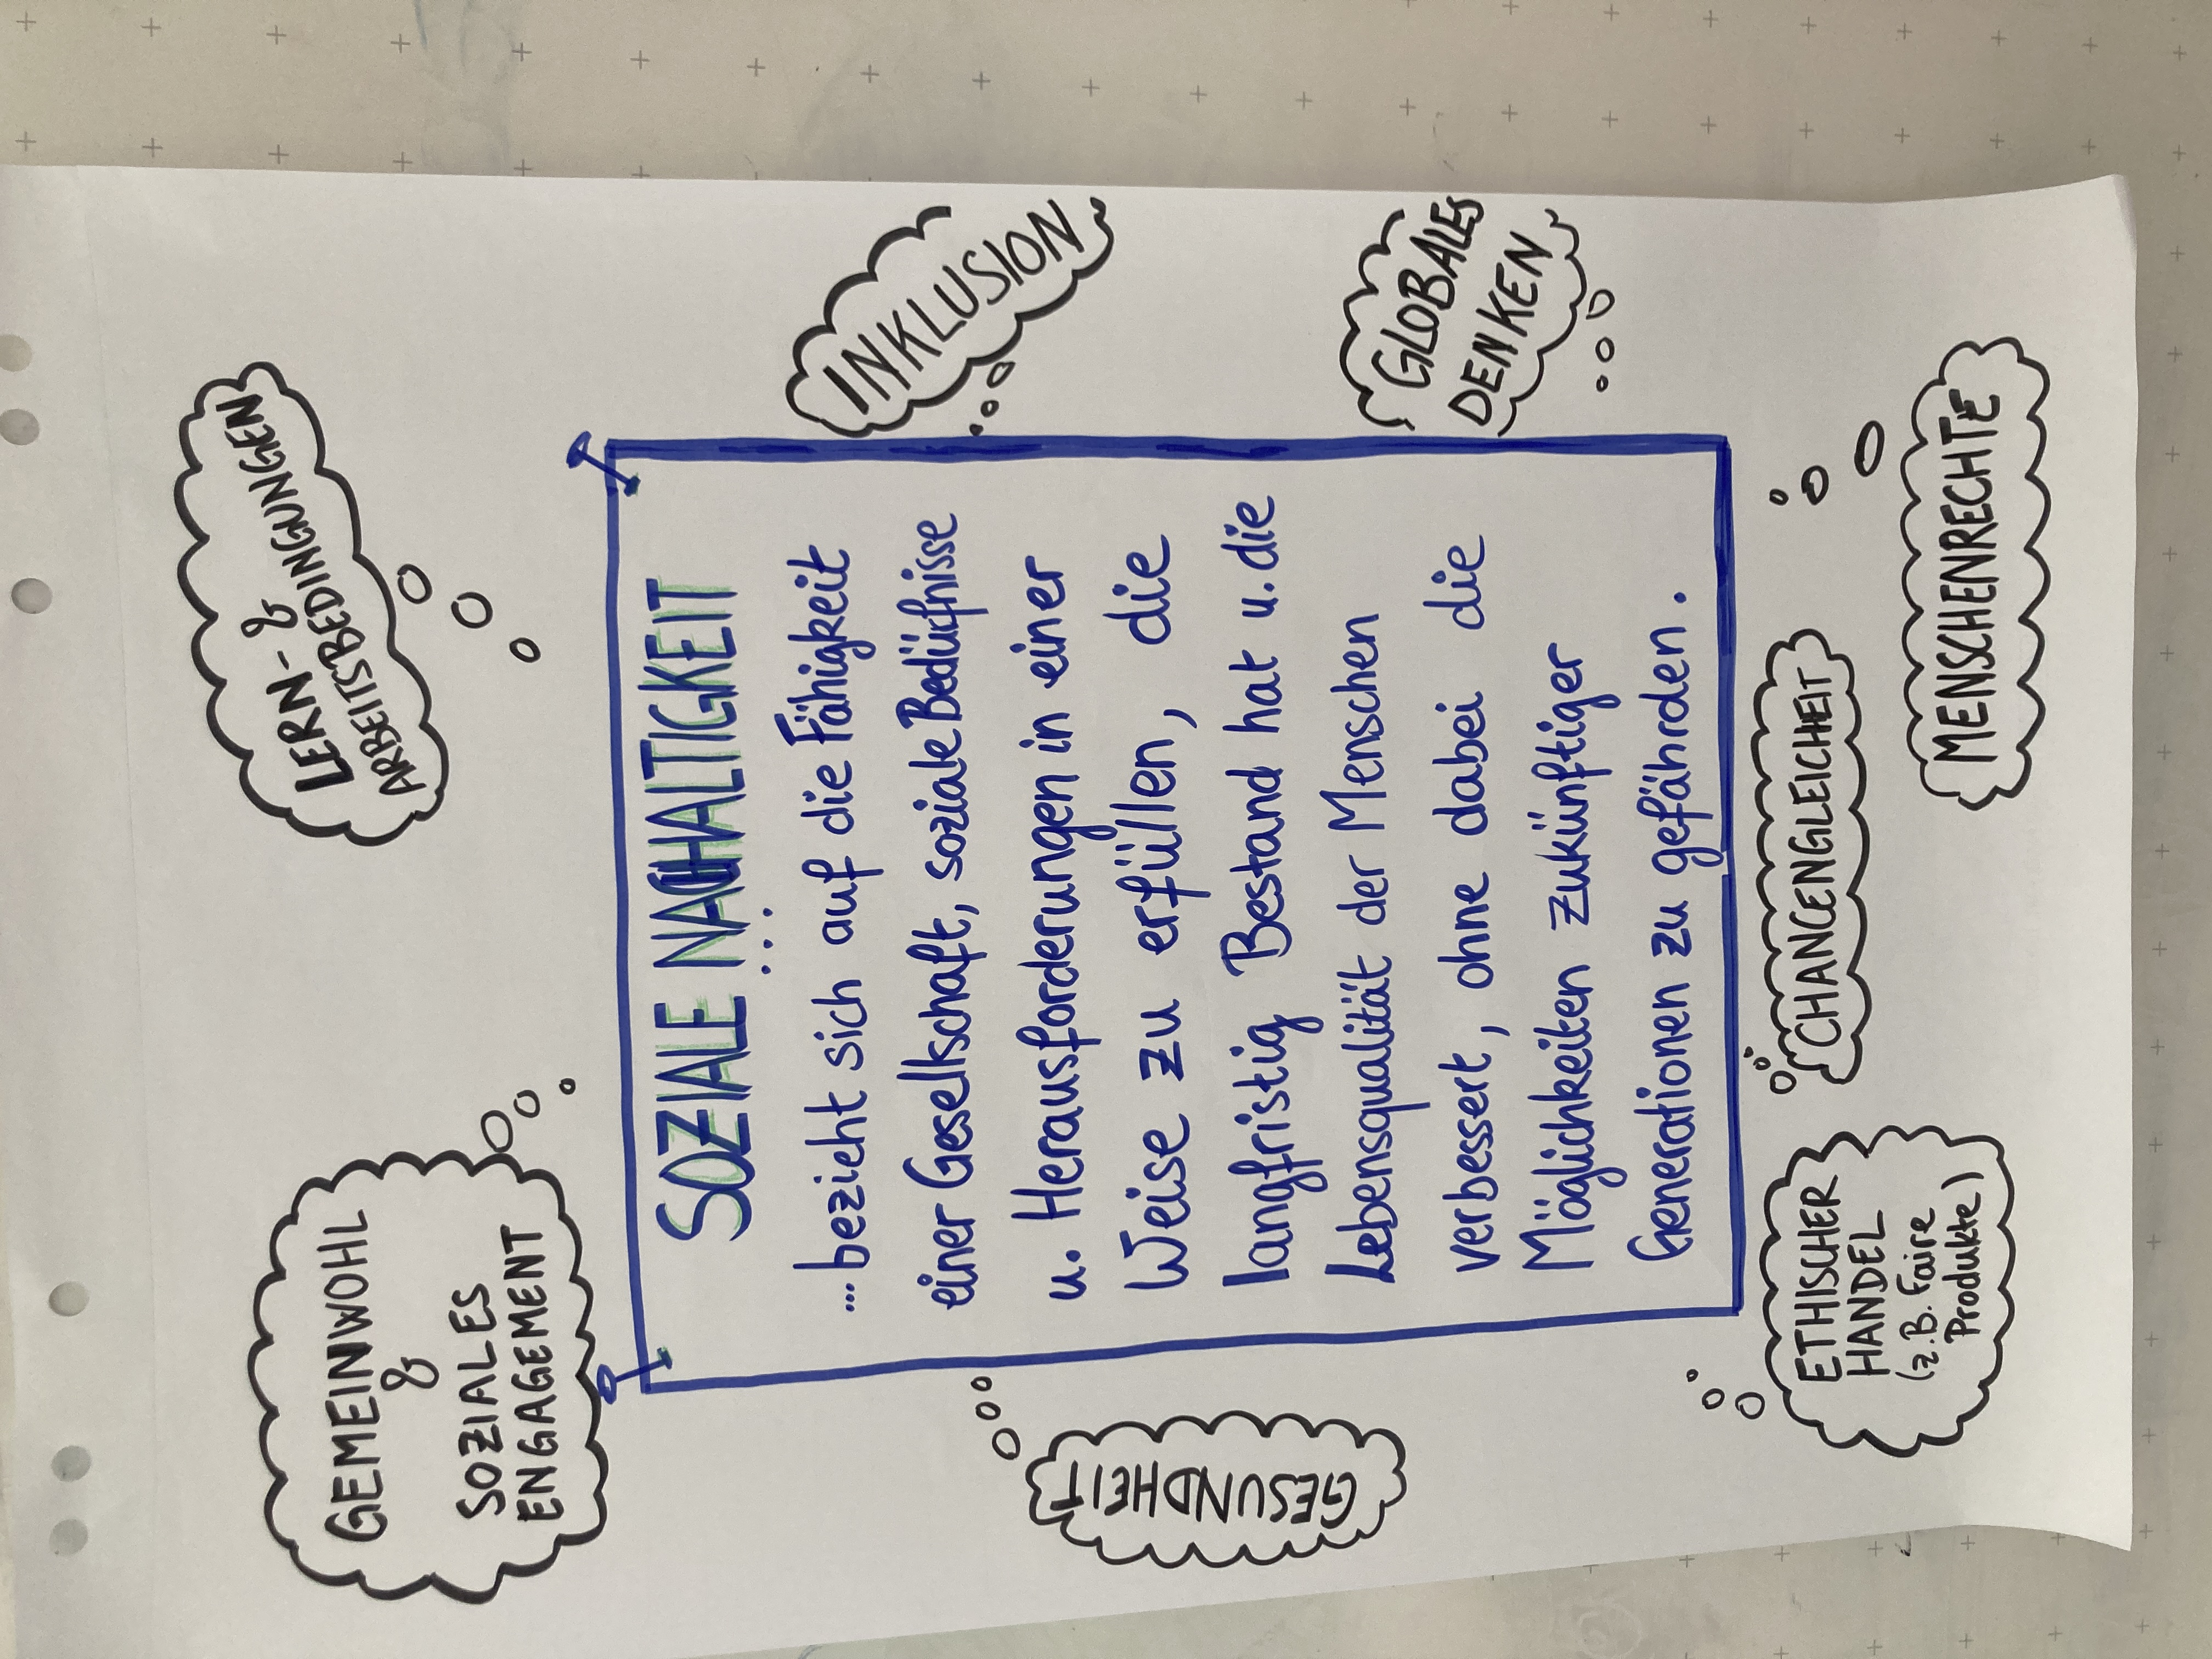 GEMEINWOHL
&
SOZIALES
ENGAGEMENT
LERN- &
ARBEITSBEDINGUNGEN
SOZIALE NACHHALTIGKEIT
...
... bezieht sich auf die Fähigkeit
einer Gesellschaft, soziale Bedürfnisse
u. Herausforderungen in einer
Weise zu erfüllen, die
langfristig Bestand hat u. die
Lebensqualität der Menschen
verbessert, ohne dabei die
Möglichkeiten zukünftiger
Generationen zu gefährden.
INKLUSION
GESUNDHEIT
GLOBALES
DENKEN
ETHISCHER
HANDEL
(z.B. Faire
Produkte)
CHANCENGLEICHHEIT
MENSCHENRECHTE